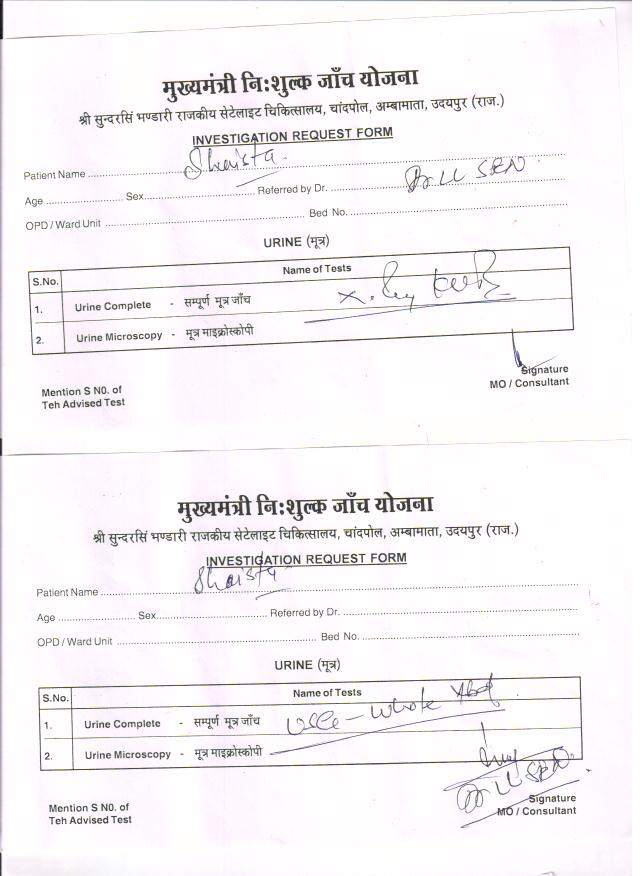 मुख्यमंत्री निःशुल्क जाँच योजना
श्री सुन्दरसिं भण्डारी राजकीय सेटेलाइट चिकित्सालय, चांदपोल, अम्बामाता, उदयपुर (राज.)
INVESTIGATION REQUEST FORM
Patient Name Shaista
Age Sex Referred by Dr. Dr U SEN
OPD / Ward Unit Bed No.
URINE (मूत्र)
S.No. Name of Tests
1. Urine Complete - सम्पूर्ण मूत्र जाँच X.
2. Urine Microscopy - मूत्र माइक्रोस्कोपी
Signature
Mention S N0. of MO / Consultant
Teh Advised Test
मुख्यमंत्री निःशुल्क जाँच योजना
श्री सुन्दरसिं भण्डारी राजकीय सेटेलाइट चिकित्सालय, चांदपोल, अम्बामाता, उदयपुर (राज.)
INVESTIGATION REQUEST FORM
Patient Name Shaista
Age Sex Referred by Dr.
OPD / Ward Unit Bed No.
URINE (मूत्र)
S.No. Name of Tests
1. Urine Complete - सम्पूर्ण मूत्र जाँच - Whole Abd
2. Urine Microscopy - मूत्र माइक्रोस्कोपी
Dr U SEN
Mention S N0. of Signature
Teh Advised Test MO / Consultant